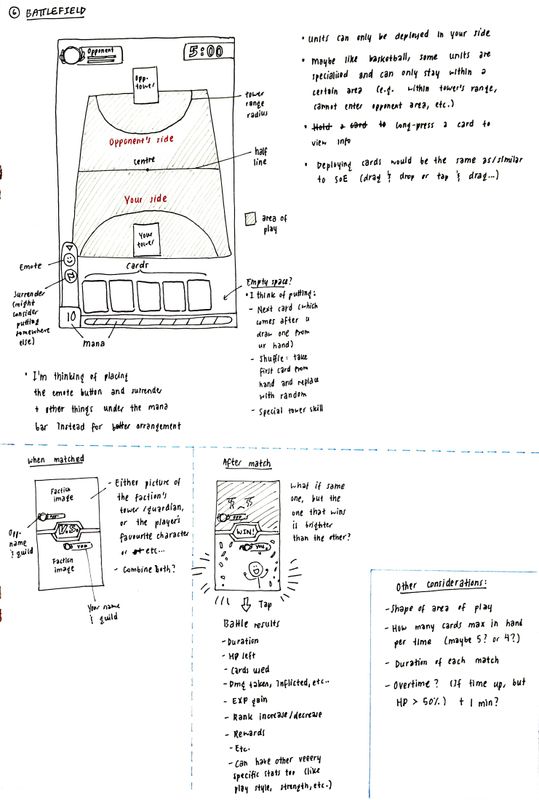 6 BATTLEFIELD
Opponent
5:00
Opp.
tower
tower
range
radius
Opponent's side
centre
half
line
Your side
Your
tower
area of
play
Emote
cards
Surrender
(might
consider
putting
somewhere
else)
10
mana
• Units can only be deployed in your side
• Maybe like basketball, some units are
specialised and can only stay within a
certain area (e.g. within tower's range,
cannot enter opponent area, etc.)
• Hold a card to long-press a card to
view info
• Deploying cards would be the same as/similar
to SoE (drag & drop or tap & drag...)
Empty space?
• I think of putting:
- Next card (which
comes after u
draw one from
ur hand)
- Shuffle: take
first card from
hand and replace
with random
- Special tower skill
• I'm thinking of placing
the emote button and surrender
+ other things under the mana
bar instead for better arrangement
When matched
Faction
image
V.S.
Faction
image
Opp-
name
& guild
Your name
& guild
- Either picture of
the faction's
tower/guardian,
or the player's
favourite character
or etc...
- Combine Both?
After match
WIN!
You
what if same
one, but the
one that wins
is brighter
than the other?
Tap
Battle results
- Duration
- HP left
- Cards used
- Dmg taken, inflicted, etc..
- EXP gain
- Rank increase/decrease
- Rewards
- Etc.
- Can have other veery
specific stats too (like
play style, strength, etc.)
Other considerations:
- Shape of area of play
- How many cards max in hand
per time (maybe 5? or 4?)
- Duration of each match
- Overtime? (If time up, but
HP > 50%) + 1 min?